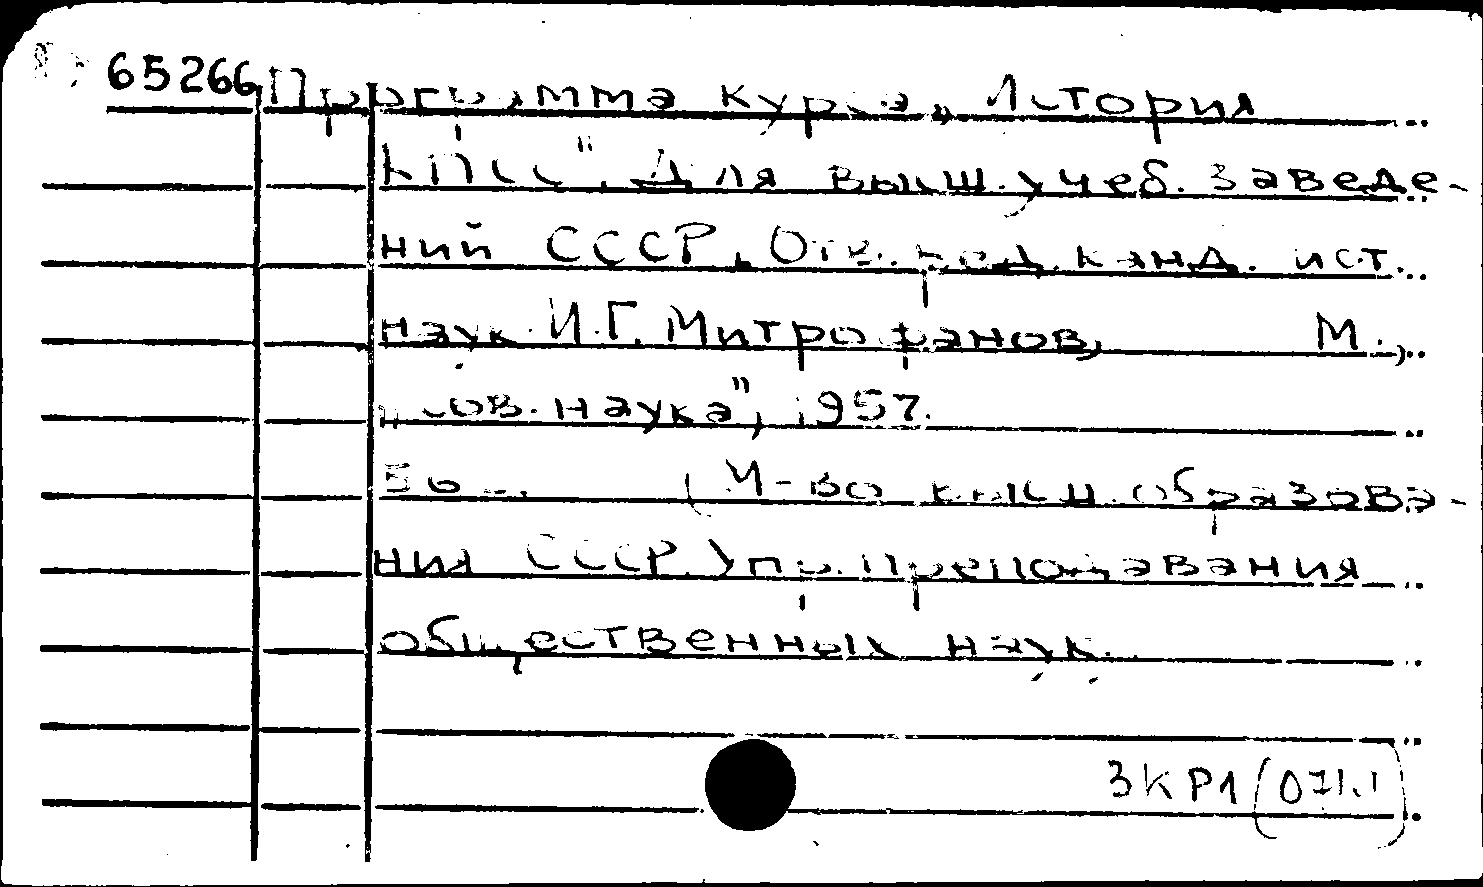 65266 Программа курса „История
КПСС". Для высш. учеб. заведе-
ний СССР. Отв. ред. канд. ист.
наук И.Г. Митрофанов, М.,
„Сов. наука", 1957.
56 с. (М-во высш. образова-
ния СССР. Упр. преподавания
общественных наук.
3КР1(071.1)